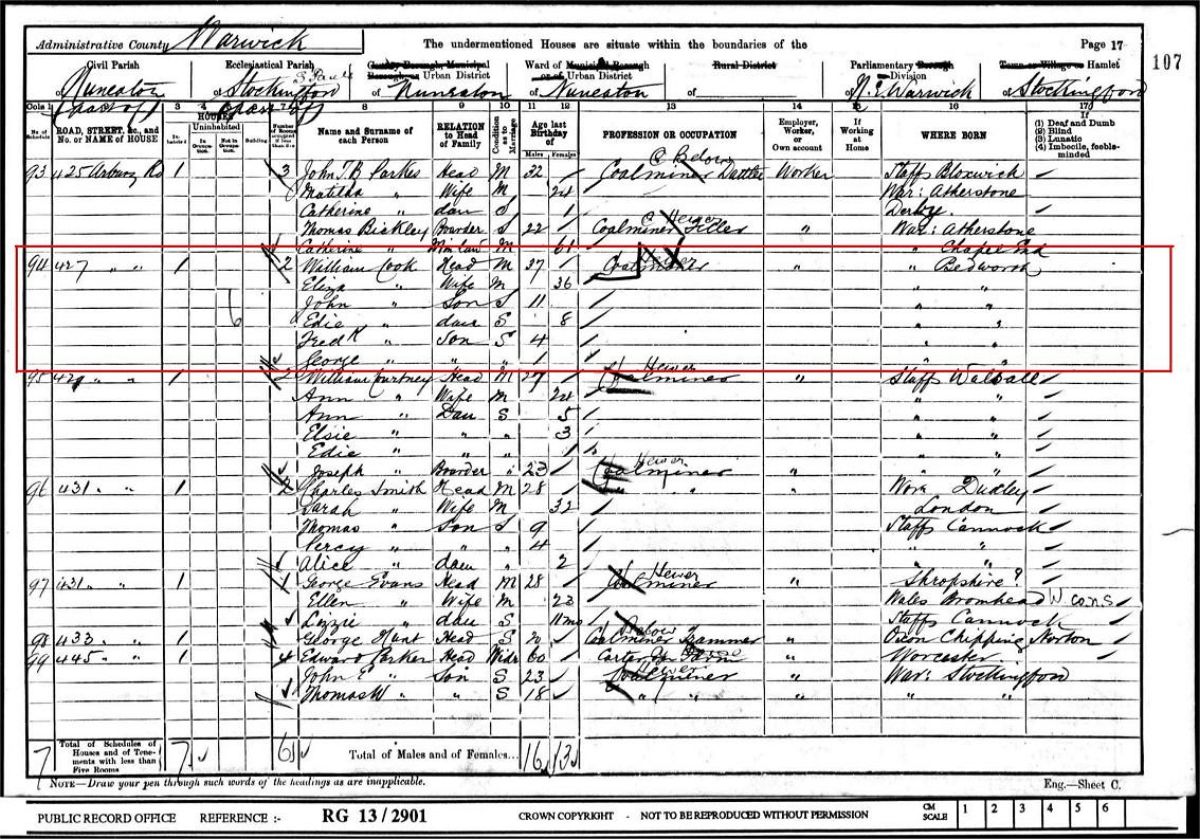 Administrative County Warwick The undermentioned Houses are situate within the boundaries of the Page 17
107
Civil Parish Ecclesiastical Parish County Borough, Municipal Borough, or Urban District Ward of Municipal Borough or of Urban District Rural District Parliamentary Borough or Division Town or Village or Hamlet
of Nuneaton of Stockingford S Pauls of Nuneaton of Nuneaton of of N. E. Warwick of Stockingford
(part of) (part of)
Cols 1 2 3 4 5 6 7 8 9 10 11 12 13 14 15 16 17
No. of Schedule ROAD, STREET, &c., and No. or NAME of HOUSE HOUSES Inhabited Uninhabited In Occupation Not in Occupation Building Number of Rooms occupied if less than five Name and Surname of each Person RELATION to Head of Family Condition as to Marriage Age last Birthday of Males Females PROFESSION OR OCCUPATION Employer, Worker, or Own account If Working at Home WHERE BORN If (1) Deaf and Dumb (2) Blind (3) Lunatic (4) Imbecile, feeble-minded
93 425 Arbury Rd 1 3 John T. B. Parkes Head M 32 Coalminer Dattler C Below Worker Staffs Bloxwich
Matilda " Wife M 24 War: Atherstone
Catherine " dau S 1 Derby.
Thomas Bickley Boarder S 22 Coalminer Filler C Hewer War: Atherstone
Catherine " M in law M 61 " Chapel End
94 427 " " 1 2 William Cook Head M 37 Coalminer Hewer " " Bedworth
Eliza " Wife M 36 " "
John " Son S 11 " "
Edie " dau S 8 " "
Fredk " Son S 4 " "
George " " " 1 " "
95 429 " " 1 2 William Courtney Head M 27 Coalminer Hewer " Staffs Walsall
Ann " Wife M 24 " "
Ann " Dau S 5 " "
Elsie " " " 3 " "
Edie " " " 1 " "
Joseph " Boarder " 23 Coalminer Hewer " " "
96 431 " " 1 2 Charles Smith Head M 28 " " " Wors Dudley
Sarah " Wife M 32 London
Thomas " Son S 9 Staffs Cannock
Percy " " " 4 " "
Alice " dau " 2
97 431 " " 1 1 George Evans Head M 28 Coalminer Hewer " Shropshire?
Ellen " Wife M 23 Wales Bromhead W. cons
Lizzie " dau S 11 ms Staffs Cannock
98 433 " " 1 George Hunt Head S Coalminer Trammer Below " Oxon Chipping Norton
99 445 " " 1 4 Edward Parker Head Widr 60 Carter on Farm " Worcester
John E " Son S 23 Coalminer Hewer War: Stockingford
Thomas W " " S 18 " " " " "
7 Total of Schedules of Houses and of Tenements with less than Five Rooms 7 6 Total of Males and of Females... 16 13
NOTE—Draw your pen through such words of the headings as are inapplicable. Eng.—Sheet C.
PUBLIC RECORD OFFICE REFERENCE :- RG 13/2901 CROWN COPYRIGHT - NOT TO BE REPRODUCED WITHOUT PERMISSION CM SCALE 1 2 3 4 5 6